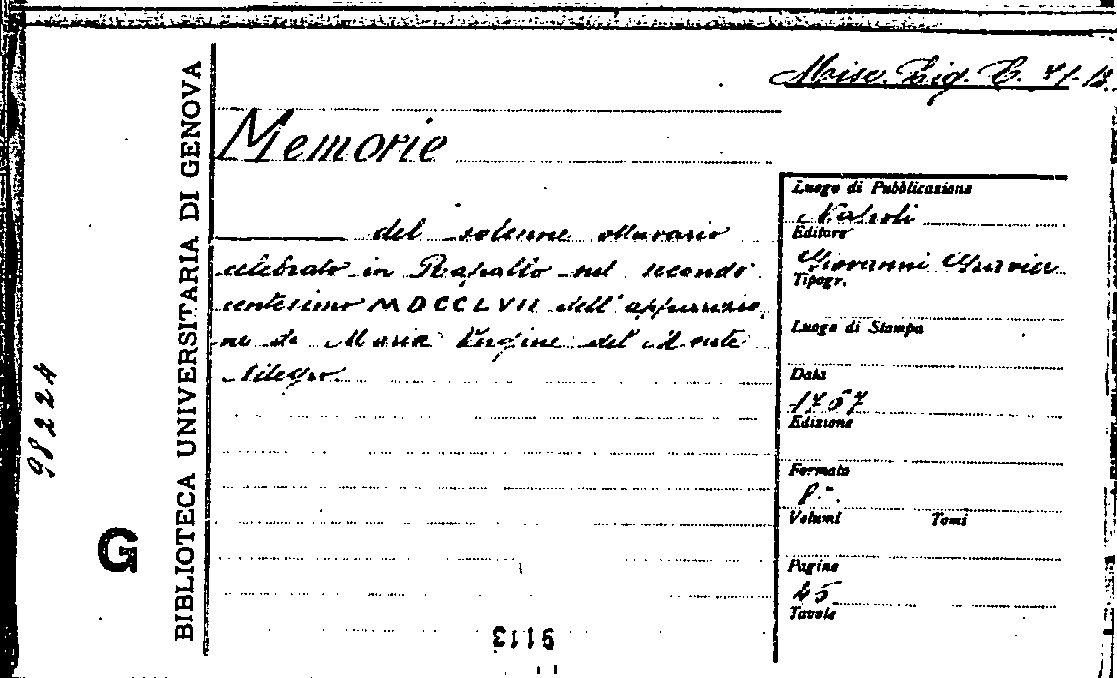 Misc. Lig. B. 41.12.
Memorie
del solenne ottavario
celebrato in Rapallo nel secondo
centesimo MDCCLVII dell' apparizio
ne di Maria Vergine del Monte
Allegro.
Luogo di Pubblicazione
Napoli
Editore
Giovanni Gravier
Tipogr.
Luogo di Stampa
Data
1757
Edizione
Formato
8°.
Volumi Tomi
Pagine
45
Tavole
BIBLIOTECA UNIVERSITARIA DI GENOVA
98224
G
9113